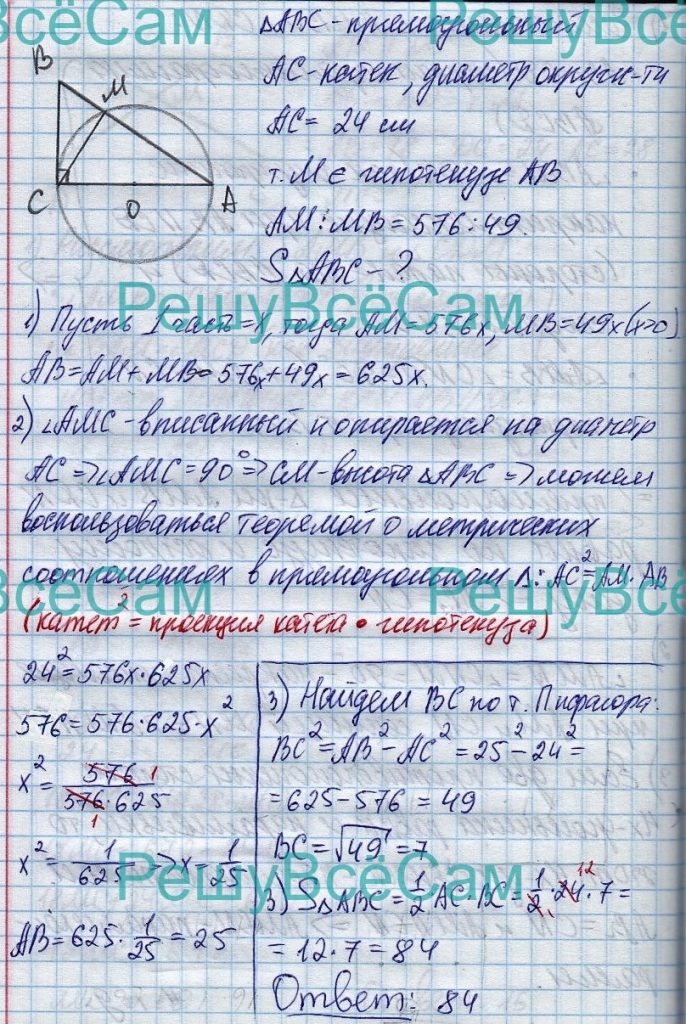 РешуВсёСам
ΔABC - прямоугольный
AC - катет, диаметр окруж-ти
AC = 24 см
т. M ∈ гипотенузе AB
AM : MB = 576 : 49.
SΔABC - ?
B
M
C
O
A
РешуВсёСам
1) Пусть 1 часть = x, тогда AM = 576x, MB = 49x (x>0)
AB = AM + MB = 576x + 49x = 625x.
2) ∠AMC - вписанный и опирается на диаметр
AC => ∠AMC = 90° => CM - высота ΔABC => можем
воспользоваться теоремой о метрических
соотношениях в прямоугольном Δ: AC² = AM · AB
РешуВсёСам
(катет² = проекция катета · гипотенуза)
24² = 576x · 625x
576 = 576 · 625 · x²
x² = 576 1 / 576 · 625 1
x² = 1/625 => x = 1/25
AB = 625 · 1/25 = 25
3) Найдем BC по т. Пифагора:
BC² = AB² - AC² = 25² - 24² =
= 625 - 576 = 49
BC = √49 = 7
РешуВсёСам
3) SΔABC = 1/2 AC · BC = 1/2 · 24 12 · 7 =
= 12 · 7 = 84
Ответ: 84